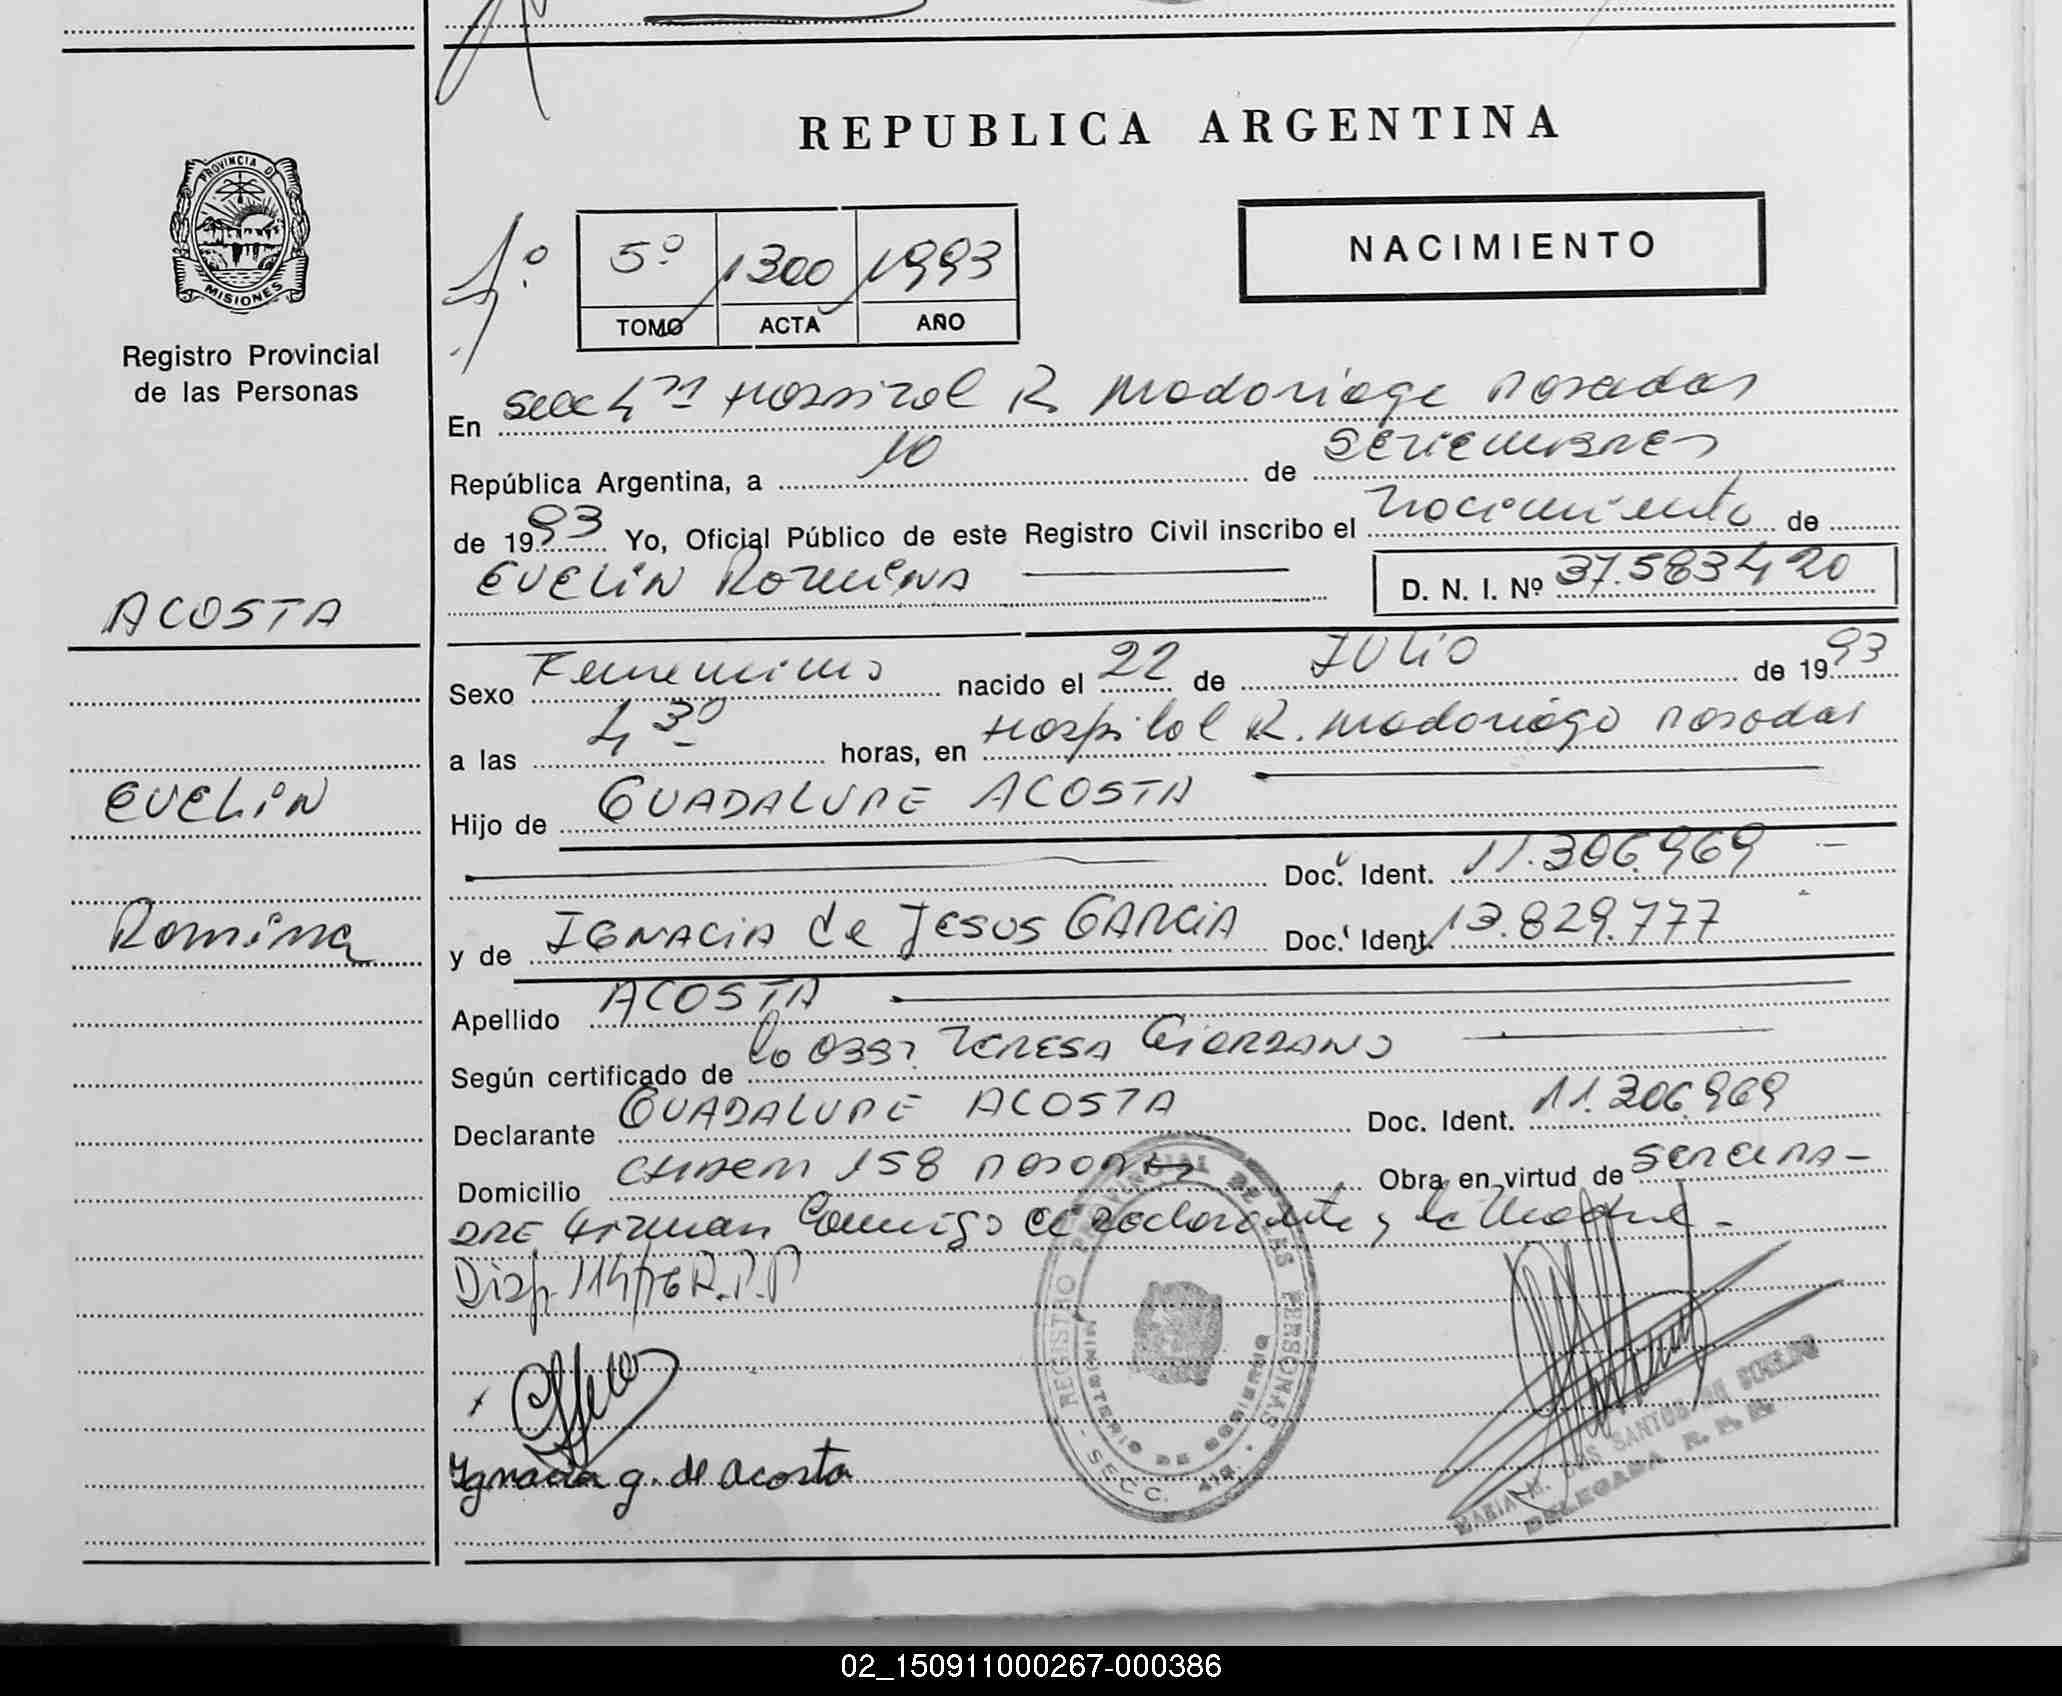 REPUBLICA ARGENTINA
PROVINCIA D
MISIONES
Registro Provincial
de las Personas
1º
5º 1300 1993
TOMO ACTA AÑO
NACIMIENTO
En Secc 4ta Hospital R Madariaga Posadas
República Argentina, a 10 de SETIEMBRE
de 1993 Yo, Oficial Público de este Registro Civil inscribo el nacimiento de
EVELIN ROMINA
D. N. I. Nº 37.583420
ACOSTA
EVELIN
Romina
Sexo Femenino nacido el 22 de JULIO de 1993
a las 4 30 horas, en Hospital R. Madariaga Posadas
Hijo de GUADALUPE ACOSTA
Doc. Ident. 11.306.969
y de IGNACIA de JESUS GARCIA Doc. Ident. 13.829.777
Apellido ACOSTA
Según certificado de TERESA GIORDANO
Declarante GUADALUPE ACOSTA Doc. Ident. 11.306.969
Domicilio 158 Obra en virtud de
DRE Firman Conmigo el declarante y la Madre -
Disp. 114/76 R.P.P
Ignacia g. de acosta
REGISTRO PROVINCIAL DE LAS PERSONAS
MINISTERIO DE GOBIERNO
- SECC. 4ta. -
MARIA M. DOS SANTOS DE
DELEGADA R. P. P.
02_150911000267-000386